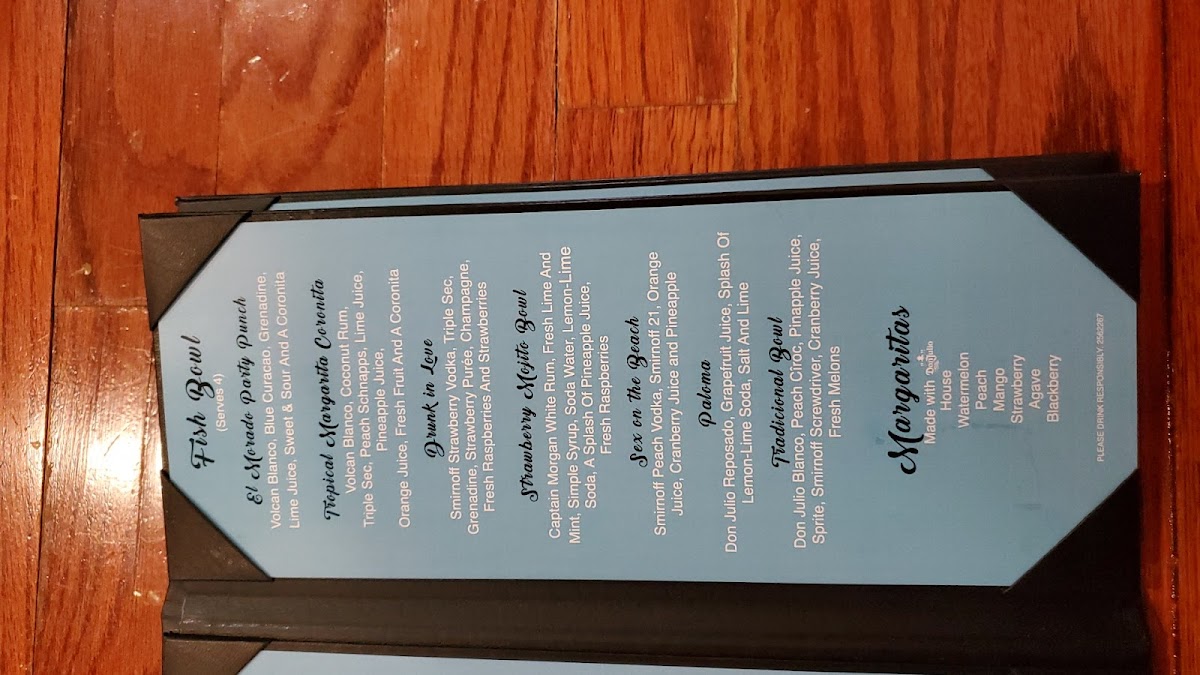 Fish Bowl
(Serves 4)
El Morado Party Punch
Volcan Blanco, Blue Curacao, Grenadine,
Lime Juice, Sweet & Sour And A Coronita
Tropical Margarita Coronita
Volcan Blanco, Coconut Rum,
Triple Sec, Peach Schnapps, Lime Juice,
Pineapple Juice,
Orange Juice, Fresh Fruit And A Coronita
Drunk in Love
Smirnoff Strawberry Vodka, Triple Sec,
Grenadine, Strawberry Purée, Champagne,
Fresh Raspberries And Strawberries
Strawberry Mojito Bowl
Captain Morgan White Rum, Fresh Lime And
Mint, Simple Syrup, Soda Water, Lemon-Lime
Soda, A Splash Of Pineapple Juice,
Fresh Raspberries
Sex on the Beach
Smirnoff Peach Vodka, Smirnoff 21, Orange
Juice, Cranberry Juice and Pineapple
Paloma
Don Julio Reposado, Grapefruit Juice, Splash Of
Lemon-Lime Soda, Salt And Lime
Tradicional Bowl
Don Julio Blanco, Peach Ciroc, Pinapple Juice,
Sprite, Smirnoff Screwdriver, Cranberry Juice,
Fresh Melons
Margaritas
Made with Don Julio
House
Watermelon
Peach
Mango
Strawberry
Agave
Blackberry
PLEASE DRINK RESPONSIBLY 2562267